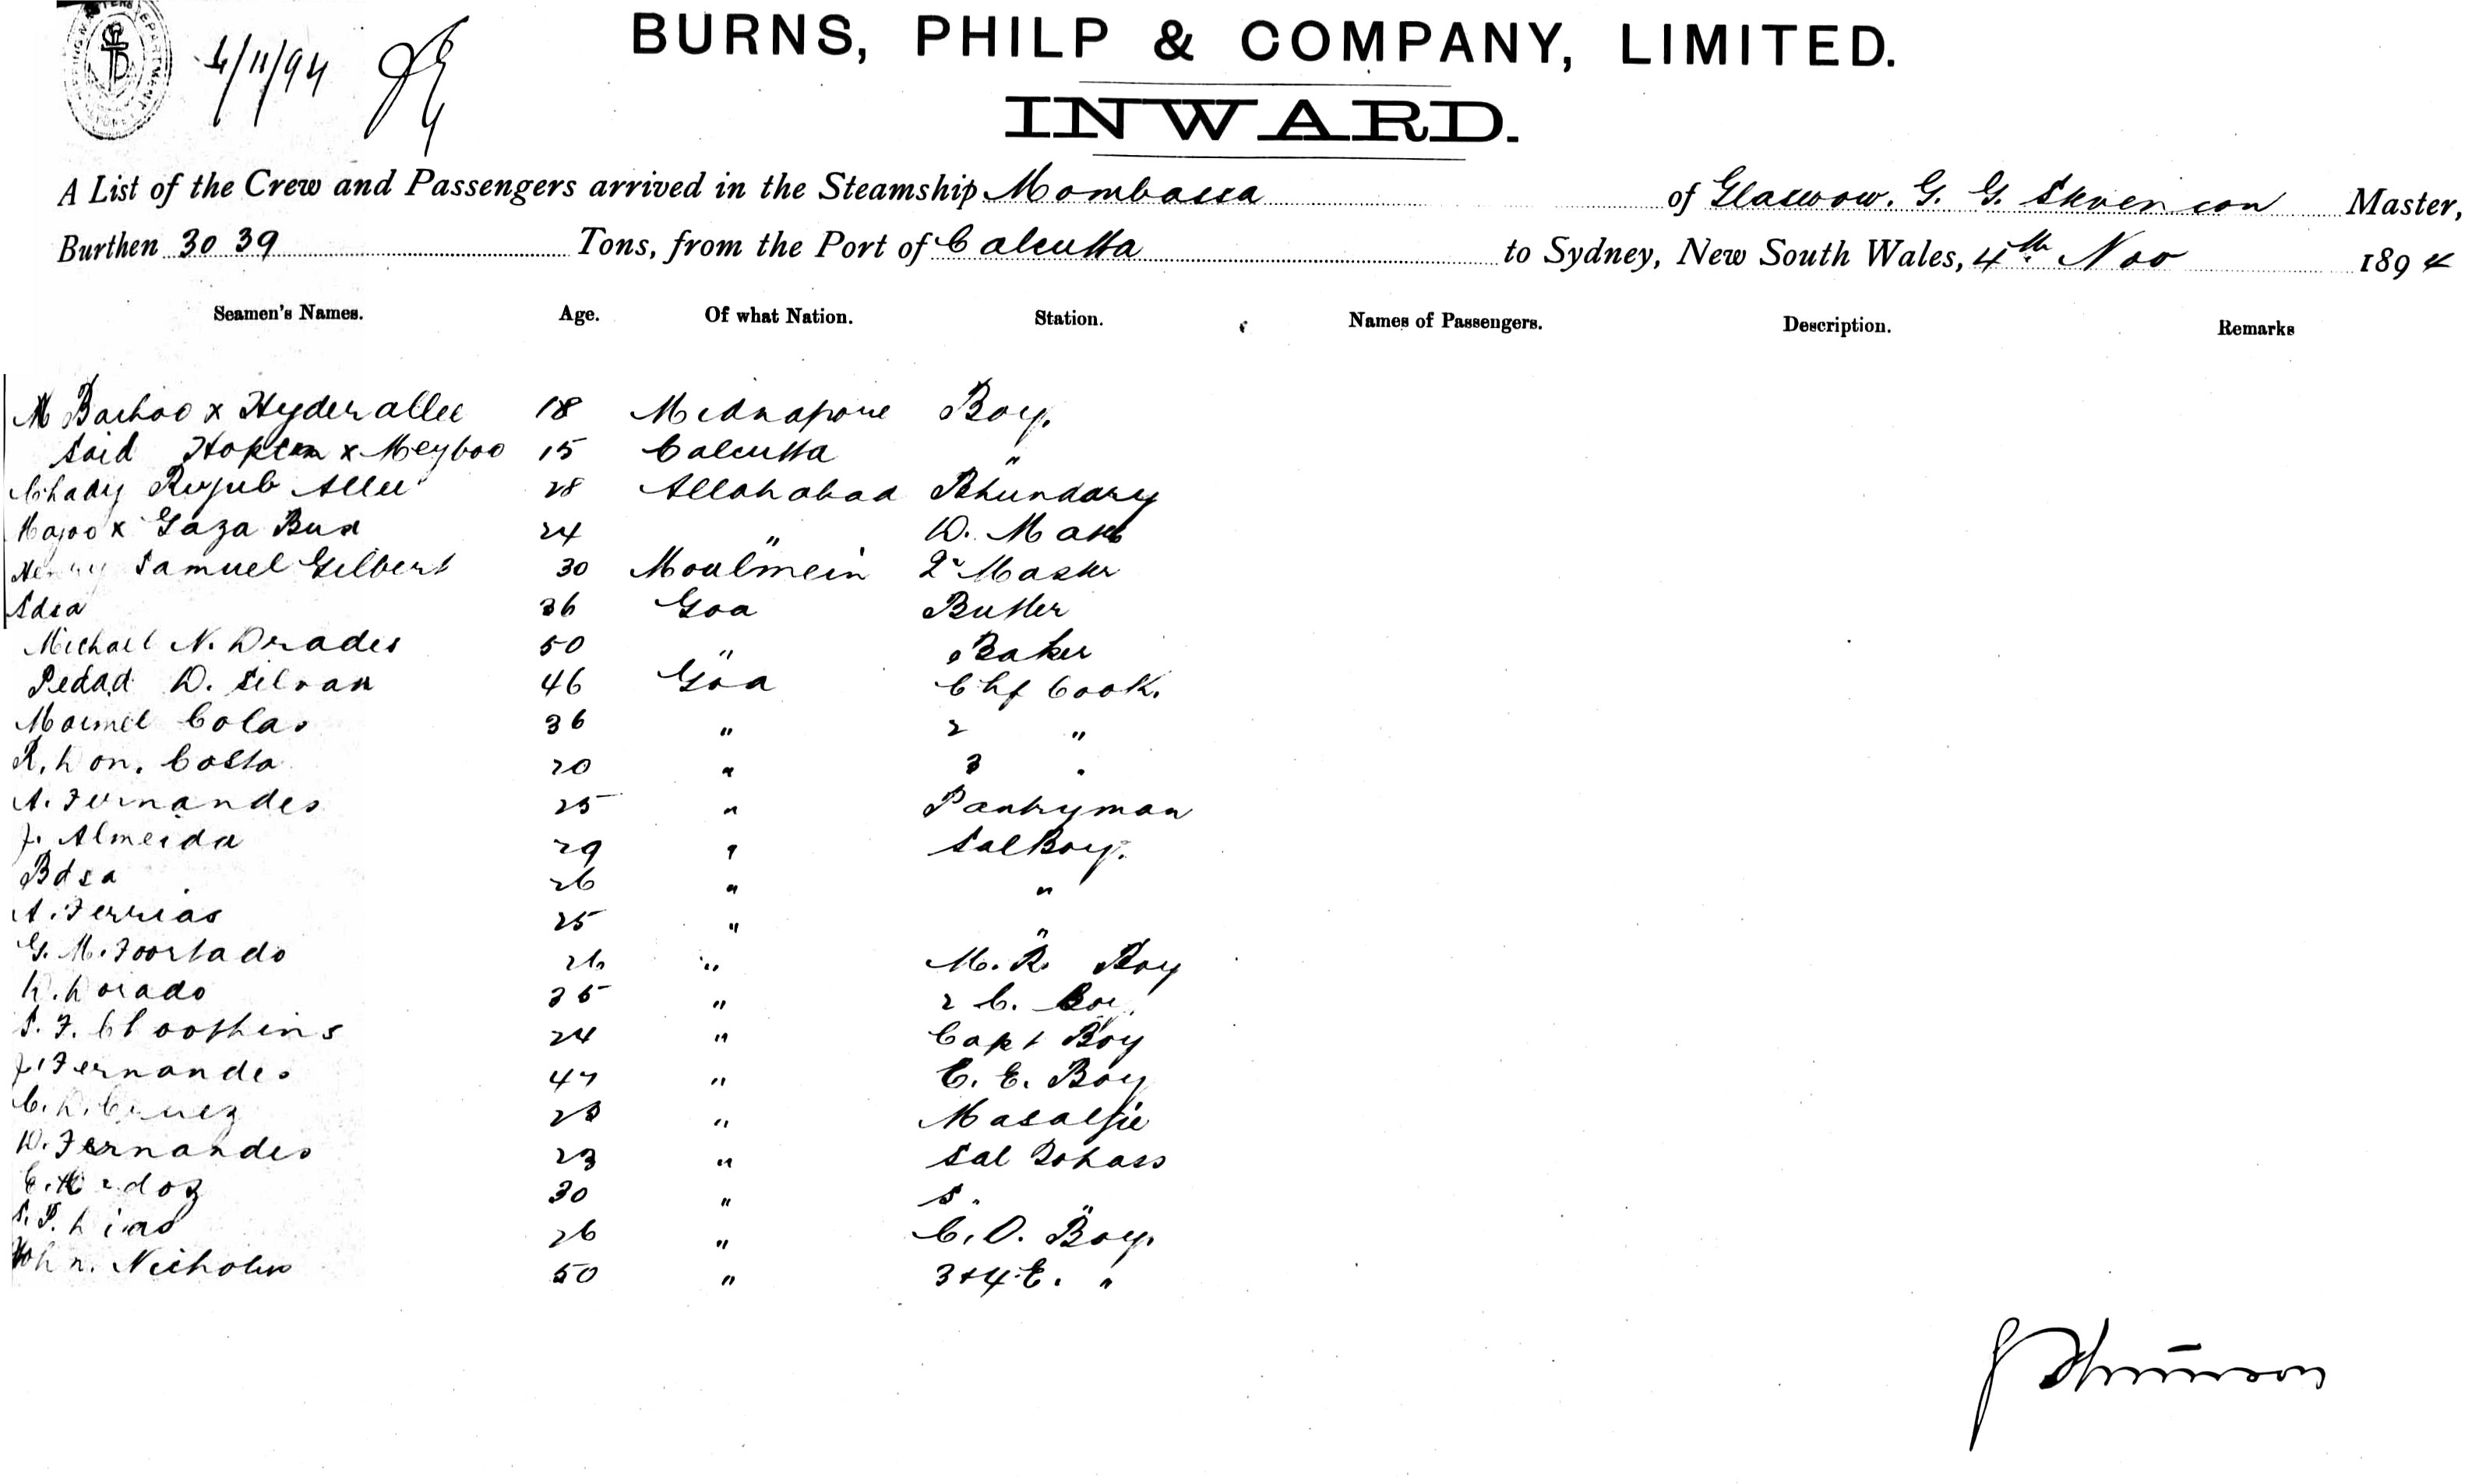 4/11/94
BURNS, PHILP & COMPANY, LIMITED.
INWARD.
A List of the Crew and Passengers arrived in the Steamship Mombassa of Glasgow. G. G. Stevenson Master,
Burthen 3039 Tons, from the Port of Calcutta to Sydney, New South Wales, 4th Nov 1894
Seamen's Names. Age. Of what Nation. Station. Names of Passengers. Description. Remarks
M Bachoo x Hyder allee 18 Midnapore Boy.
Said x Meyboo 15 Calcutta "
Rujub Allee 28 Allahabad Bhundary
x Gaza Bux 24 " D.
Henry Samuel Gilbert 30 Moulmein Qr Master
Adsa 36 Goa Butler
Michael N. Drades 50 " Baker
Pedad D. Silvan 46 Goa Chf Cook.
Colas 36 " 2 "
R. Don. Costa 20 " 3 "
A. Fernandes 25 " Pantryman
J. Almeida 29 " Sal Boy.
Bdsa 26 " "
A. Ferrias 25 " "
G. M. Foortado 26 " M. R. Boy
D. Dorado 35 " 2 C. Boy
S. F. 24 " Capt Boy
J. Fernandes 47 " C. E. Boy
C. D. Cruez 28 " Masaljie
D. Fernandes 23 " Sal Tohass
30 " S. "
S. P. Dias 26 " C. O. Boy.
John Nicholus 50 " 3+4 E. "